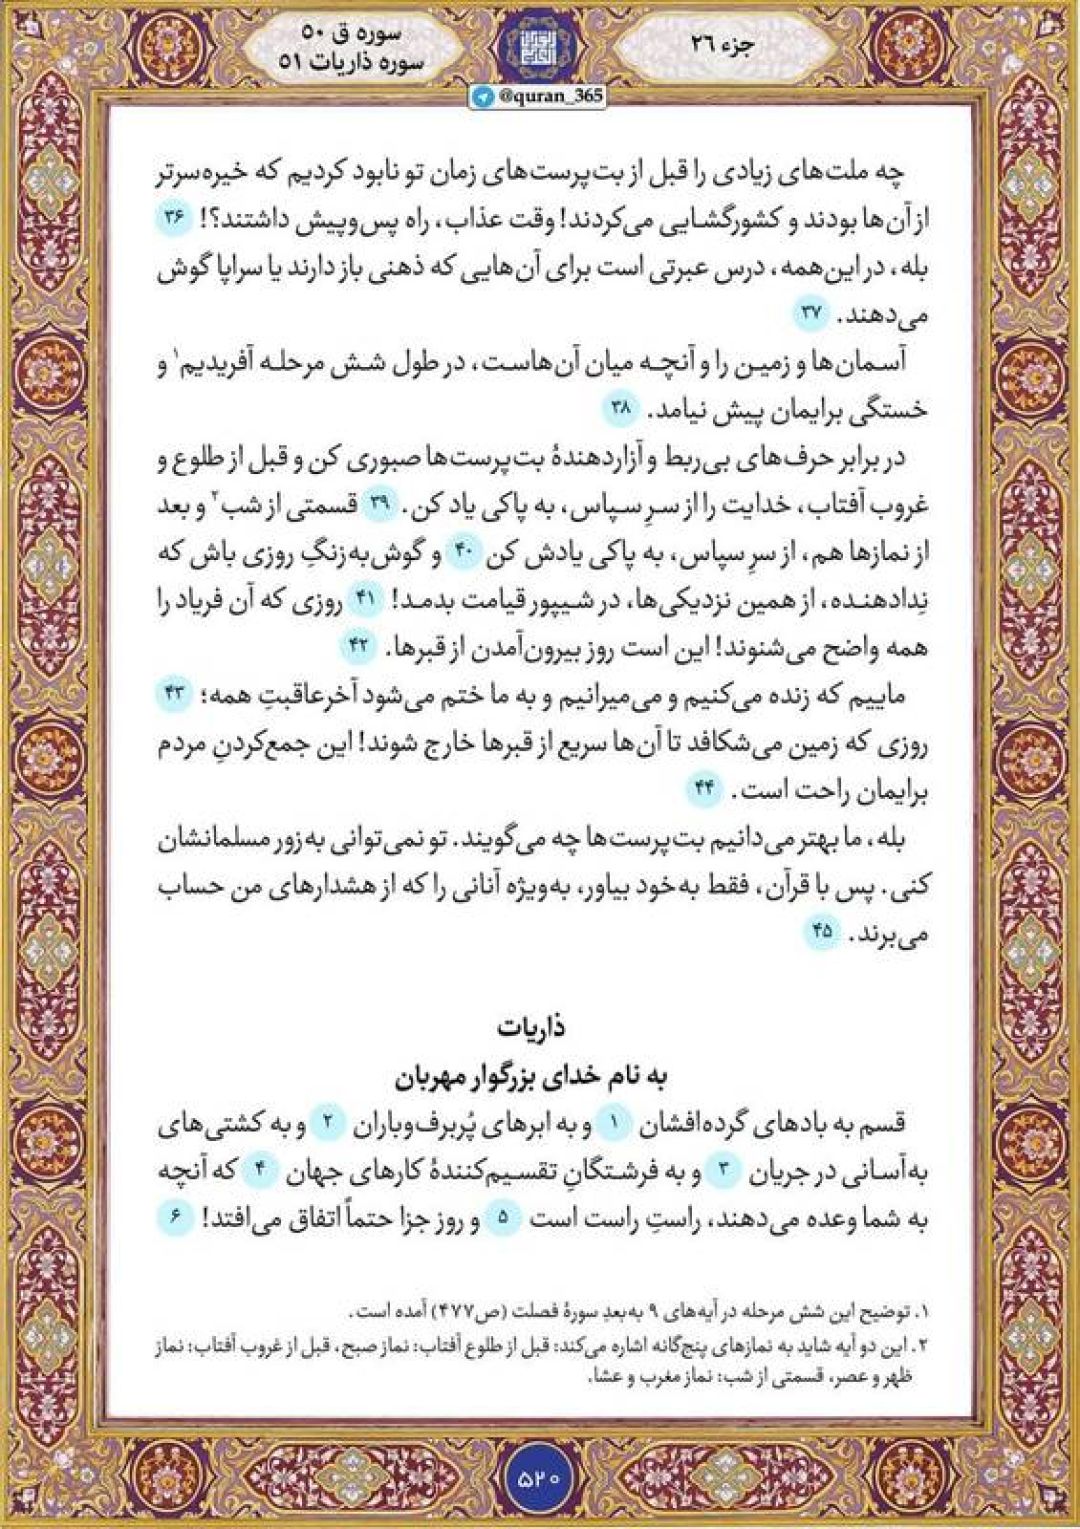 جزء ۲۶
سوره ق ۵۰
سوره ذاریات ۵۱
@quran_365
چه ملت‌های زیادی را قبل از بت‌پرست‌های زمان تو نابود کردیم که خیره‌سرتر
از آن‌ها بودند و کشورگشایی می‌کردند! وقت عذاب، راه پس‌وپیش داشتند؟! ۳۶
بله، در این‌همه، درس عبرتی است برای آن‌هایی که ذهنی باز دارند یا سراپا گوش
می‌دهند. ۳۷
آسمان‌ها و زمین را و آنچه میان آن‌هاست، در طول شش مرحله آفریدیم۱ و
خستگی برایمان پیش نیامد. ۳۸
در برابر حرف‌های بی‌ربط و آزاردهندهٔ بت‌پرست‌ها صبوری کن و قبل از طلوع و
غروب آفتاب، خدایت را از سرِ سپاس، به پاکی یاد کن. ۳۹ قسمتی از شب۲ و بعد
از نمازها هم، از سرِ سپاس، به پاکی یادش کن ۴۰ و گوش‌به‌زنگِ روزی باش که
نِدادهنده، از همین نزدیکی‌ها، در شیپور قیامت بدمد! ۴۱ روزی که آن فریاد را
همه واضح می‌شنوند! این است روز بیرون‌آمدن از قبرها. ۴۲
ماییم که زنده می‌کنیم و می‌میرانیم و به ما ختم می‌شود آخرعاقبتِ همه؛ ۴۳
روزی که زمین می‌شکافد تا آن‌ها سریع از قبرها خارج شوند! این جمع‌کردنِ مردم
برایمان راحت است. ۴۴
بله، ما بهتر می‌دانیم بت‌پرست‌ها چه می‌گویند. تو نمی‌توانی به‌زور مسلمانشان
کنی. پس با قرآن، فقط به‌خود بیاور، به‌ویژه آنانی را که از هشدارهای من حساب
می‌برند. ۴۵
ذاریات
به نام خدای بزرگوار مهربان
قسم به بادهای گرده‌افشان ۱ و به ابرهای پُربرف‌وباران ۲ و به کشتی‌های
به‌آسانی در جریان ۳ و به فرشتگانِ تقسیم‌کنندهٔ کارهای جهان ۴ که آنچه
به شما وعده می‌دهند، راستِ راست است ۵ و روز جزا حتماً اتفاق می‌افتد! ۶
۱. توضیح این شش مرحله در آیه‌های ۹ به‌بعدِ سورهٔ فصلت (ص۴۷۷) آمده است.
۲. این دو آیه شاید به نمازهای پنج‌گانه اشاره می‌کند: قبل از طلوع آفتاب: نماز صبح، قبل از غروب آفتاب: نماز
ظهر و عصر، قسمتی از شب: نماز مغرب و عشا.
۵۲۰